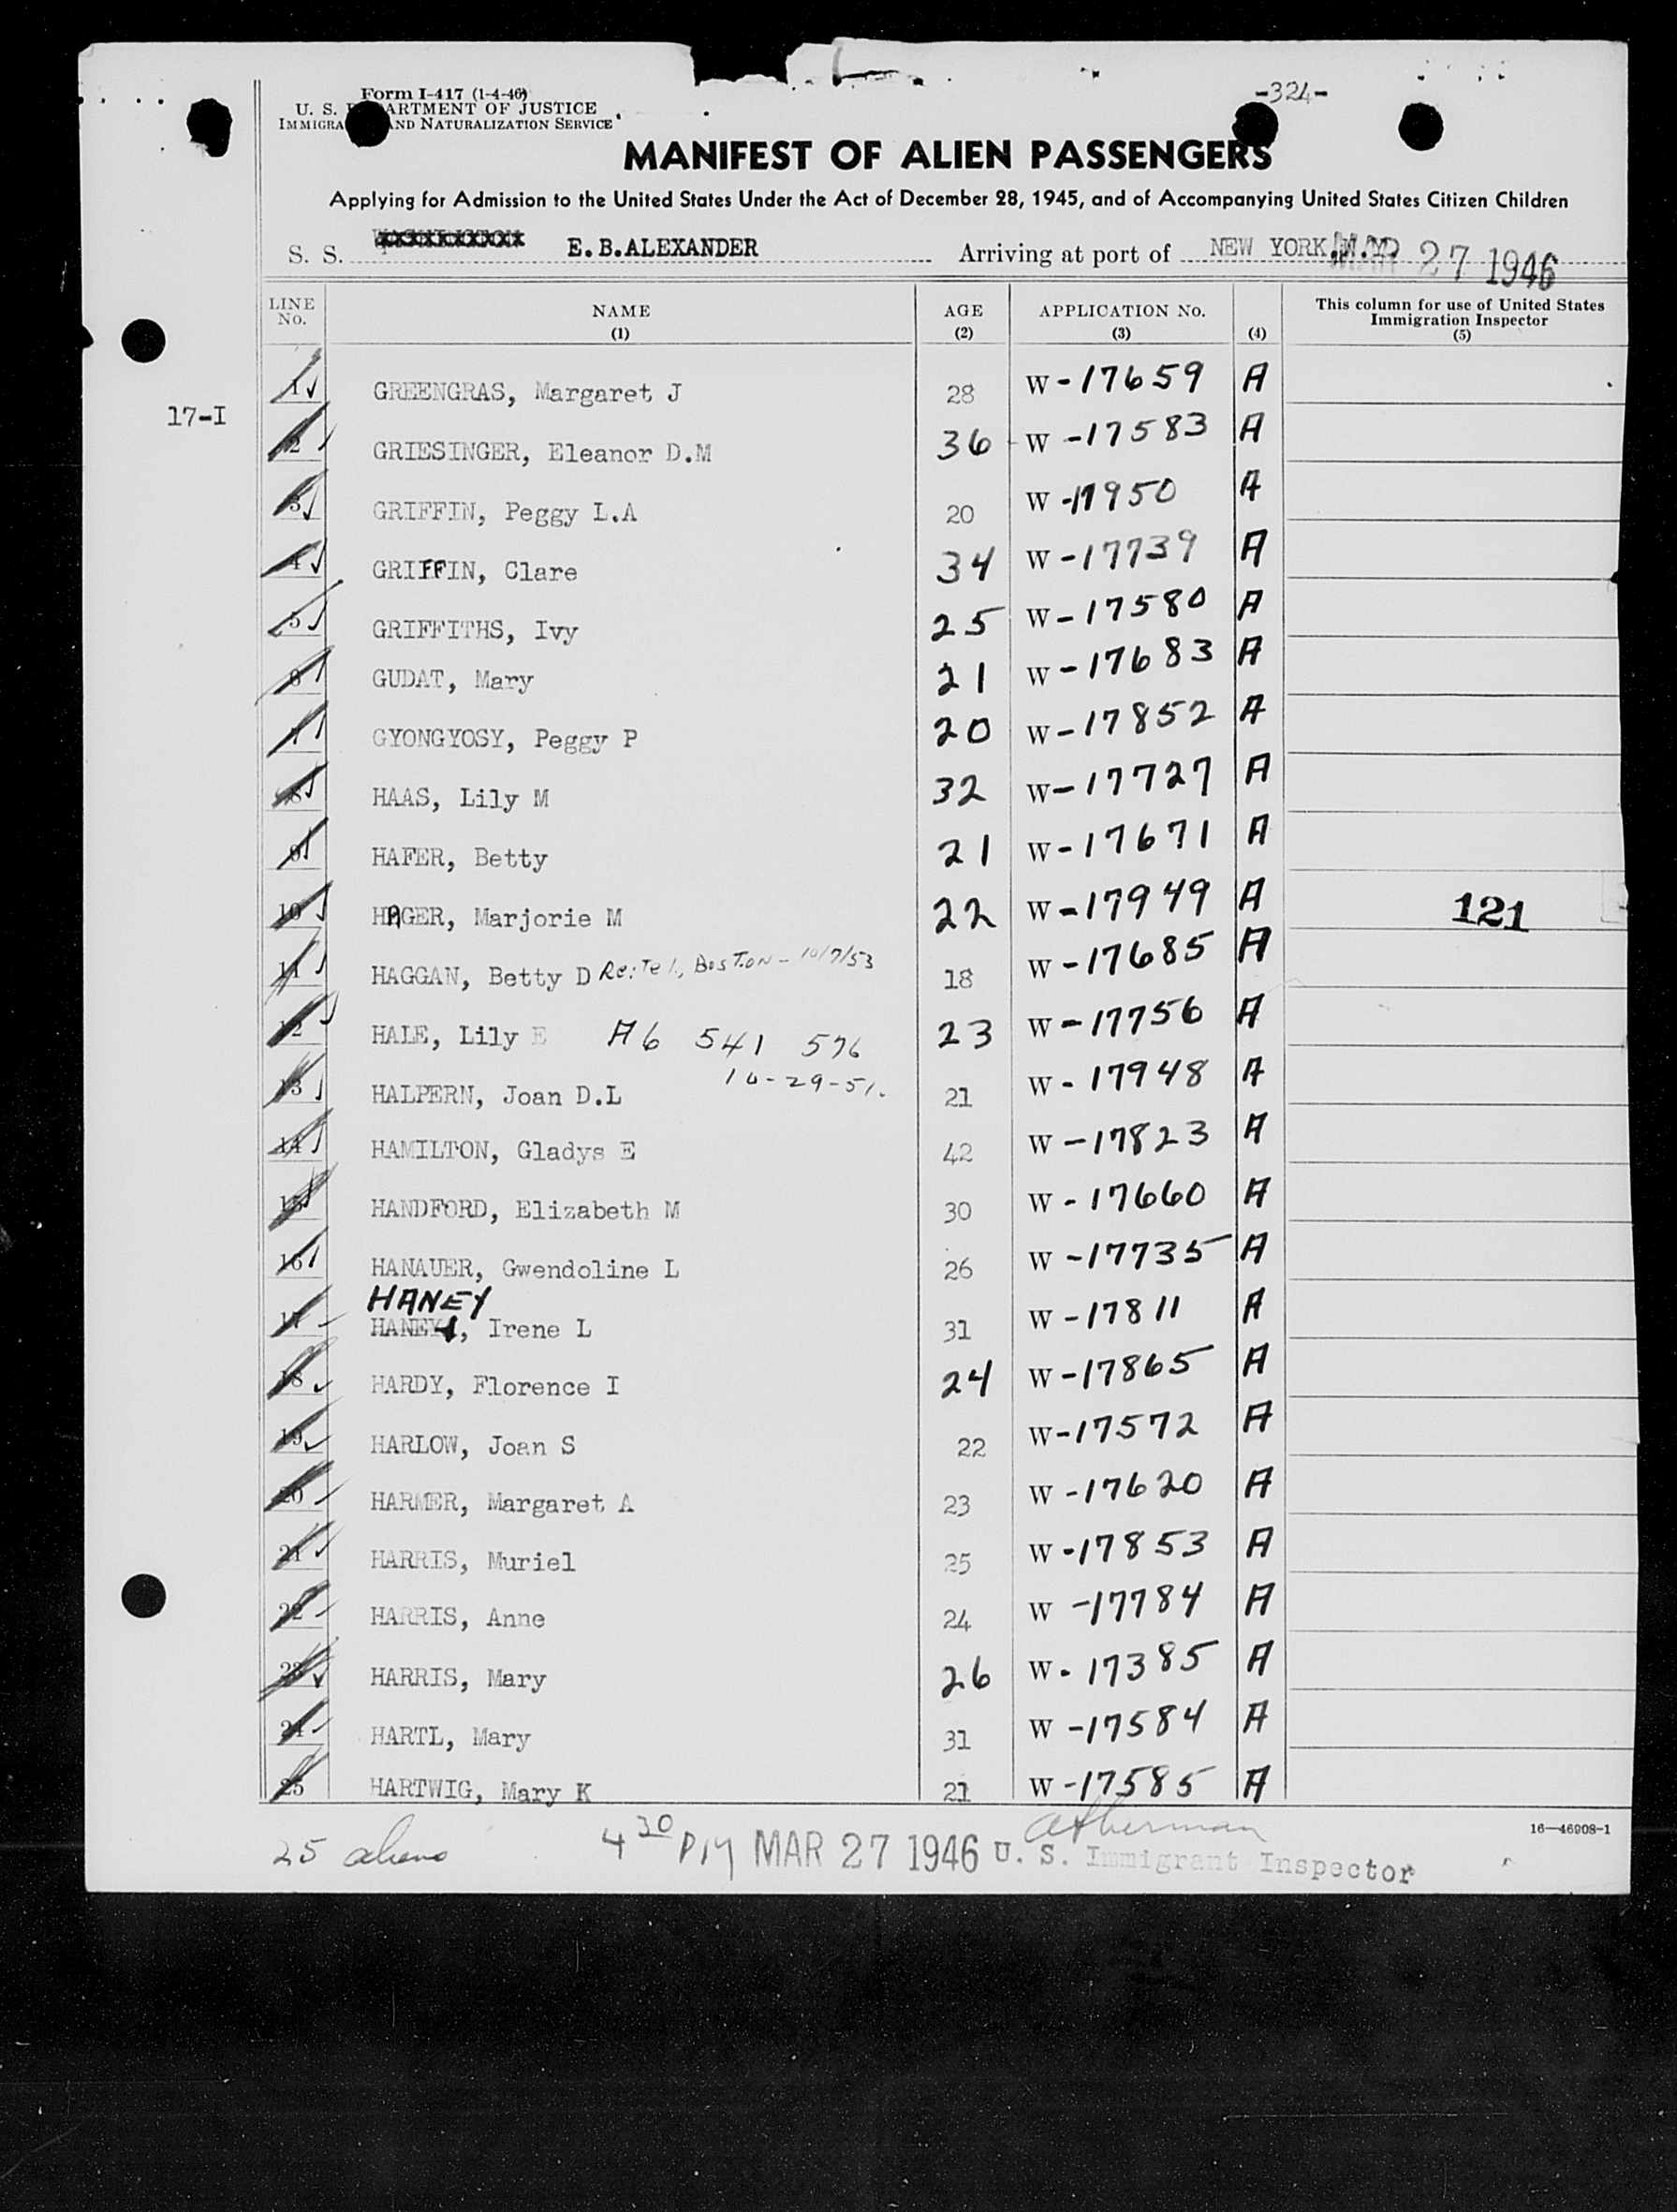 Form I-417 (1-4-46)
-324-
U. S. DEPARTMENT OF JUSTICE
IMMIGRATION AND NATURALIZATION SERVICE
MANIFEST OF ALIEN PASSENGERS
Applying for Admission to the United States Under the Act of December 28, 1945, and of Accompanying United States Citizen Children
S. S. E.B.ALEXANDER Arriving at port of NEW YORK,N.Y. MAR 27 1946
LINE No. NAME (1) AGE (2) APPLICATION No. (3) (4) This column for use of United States Immigration Inspector (5)
17-I
1 GREENGRAS, Margaret J 28 W-17659 A
2 GRIESINGER, Eleanor D.M 36 W-17583 A
3 GRIFFIN, Peggy L.A 20 W-17950 A
4 GRIFFIN, Clare 34 W-17739 A
5 GRIFFITHS, Ivy 25 W-17580 A
6 GUDAT, Mary 21 W-17683 A
7 GYONGYOSY, Peggy P 20 W-17852 A
8 HAAS, Lily M 32 W-17727 A
9 HAFER, Betty 21 W-17671 A
10 HAGER, Marjorie M 22 W-17949 A 121
11 HAGGAN, Betty D Re: Tel., Boston - 10/7/53 18 W-17685 A
12 HALE, Lily E A6 541 576 23 W-17756 A
10-29-51.
13 HALPERN, Joan D.L 21 W-17948 A
14 HAMILTON, Gladys E 42 W-17823 A
15 HANDFORD, Elizabeth M 30 W-17660 A
16 HANAUER, Gwendoline L 26 W-17735 A
HANEY
17 HANEY, Irene L 31 W-17811 A
18 HARDY, Florence I 24 W-17865 A
19 HARLOW, Joan S 22 W-17572 A
20 HARMER, Margaret A 23 W-17620 A
21 HARRIS, Muriel 25 W-17853 A
22 HARRIS, Anne 24 W-17784 A
23 HARRIS, Mary 26 W-17385 A
24 HARTL, Mary 31 W-17584 A
25 HARTWIG, Mary K 21 W-17585 A
16-46908-1
25 aliens 4 30 PM MAR 27 1946 U. S. Immigrant Inspector